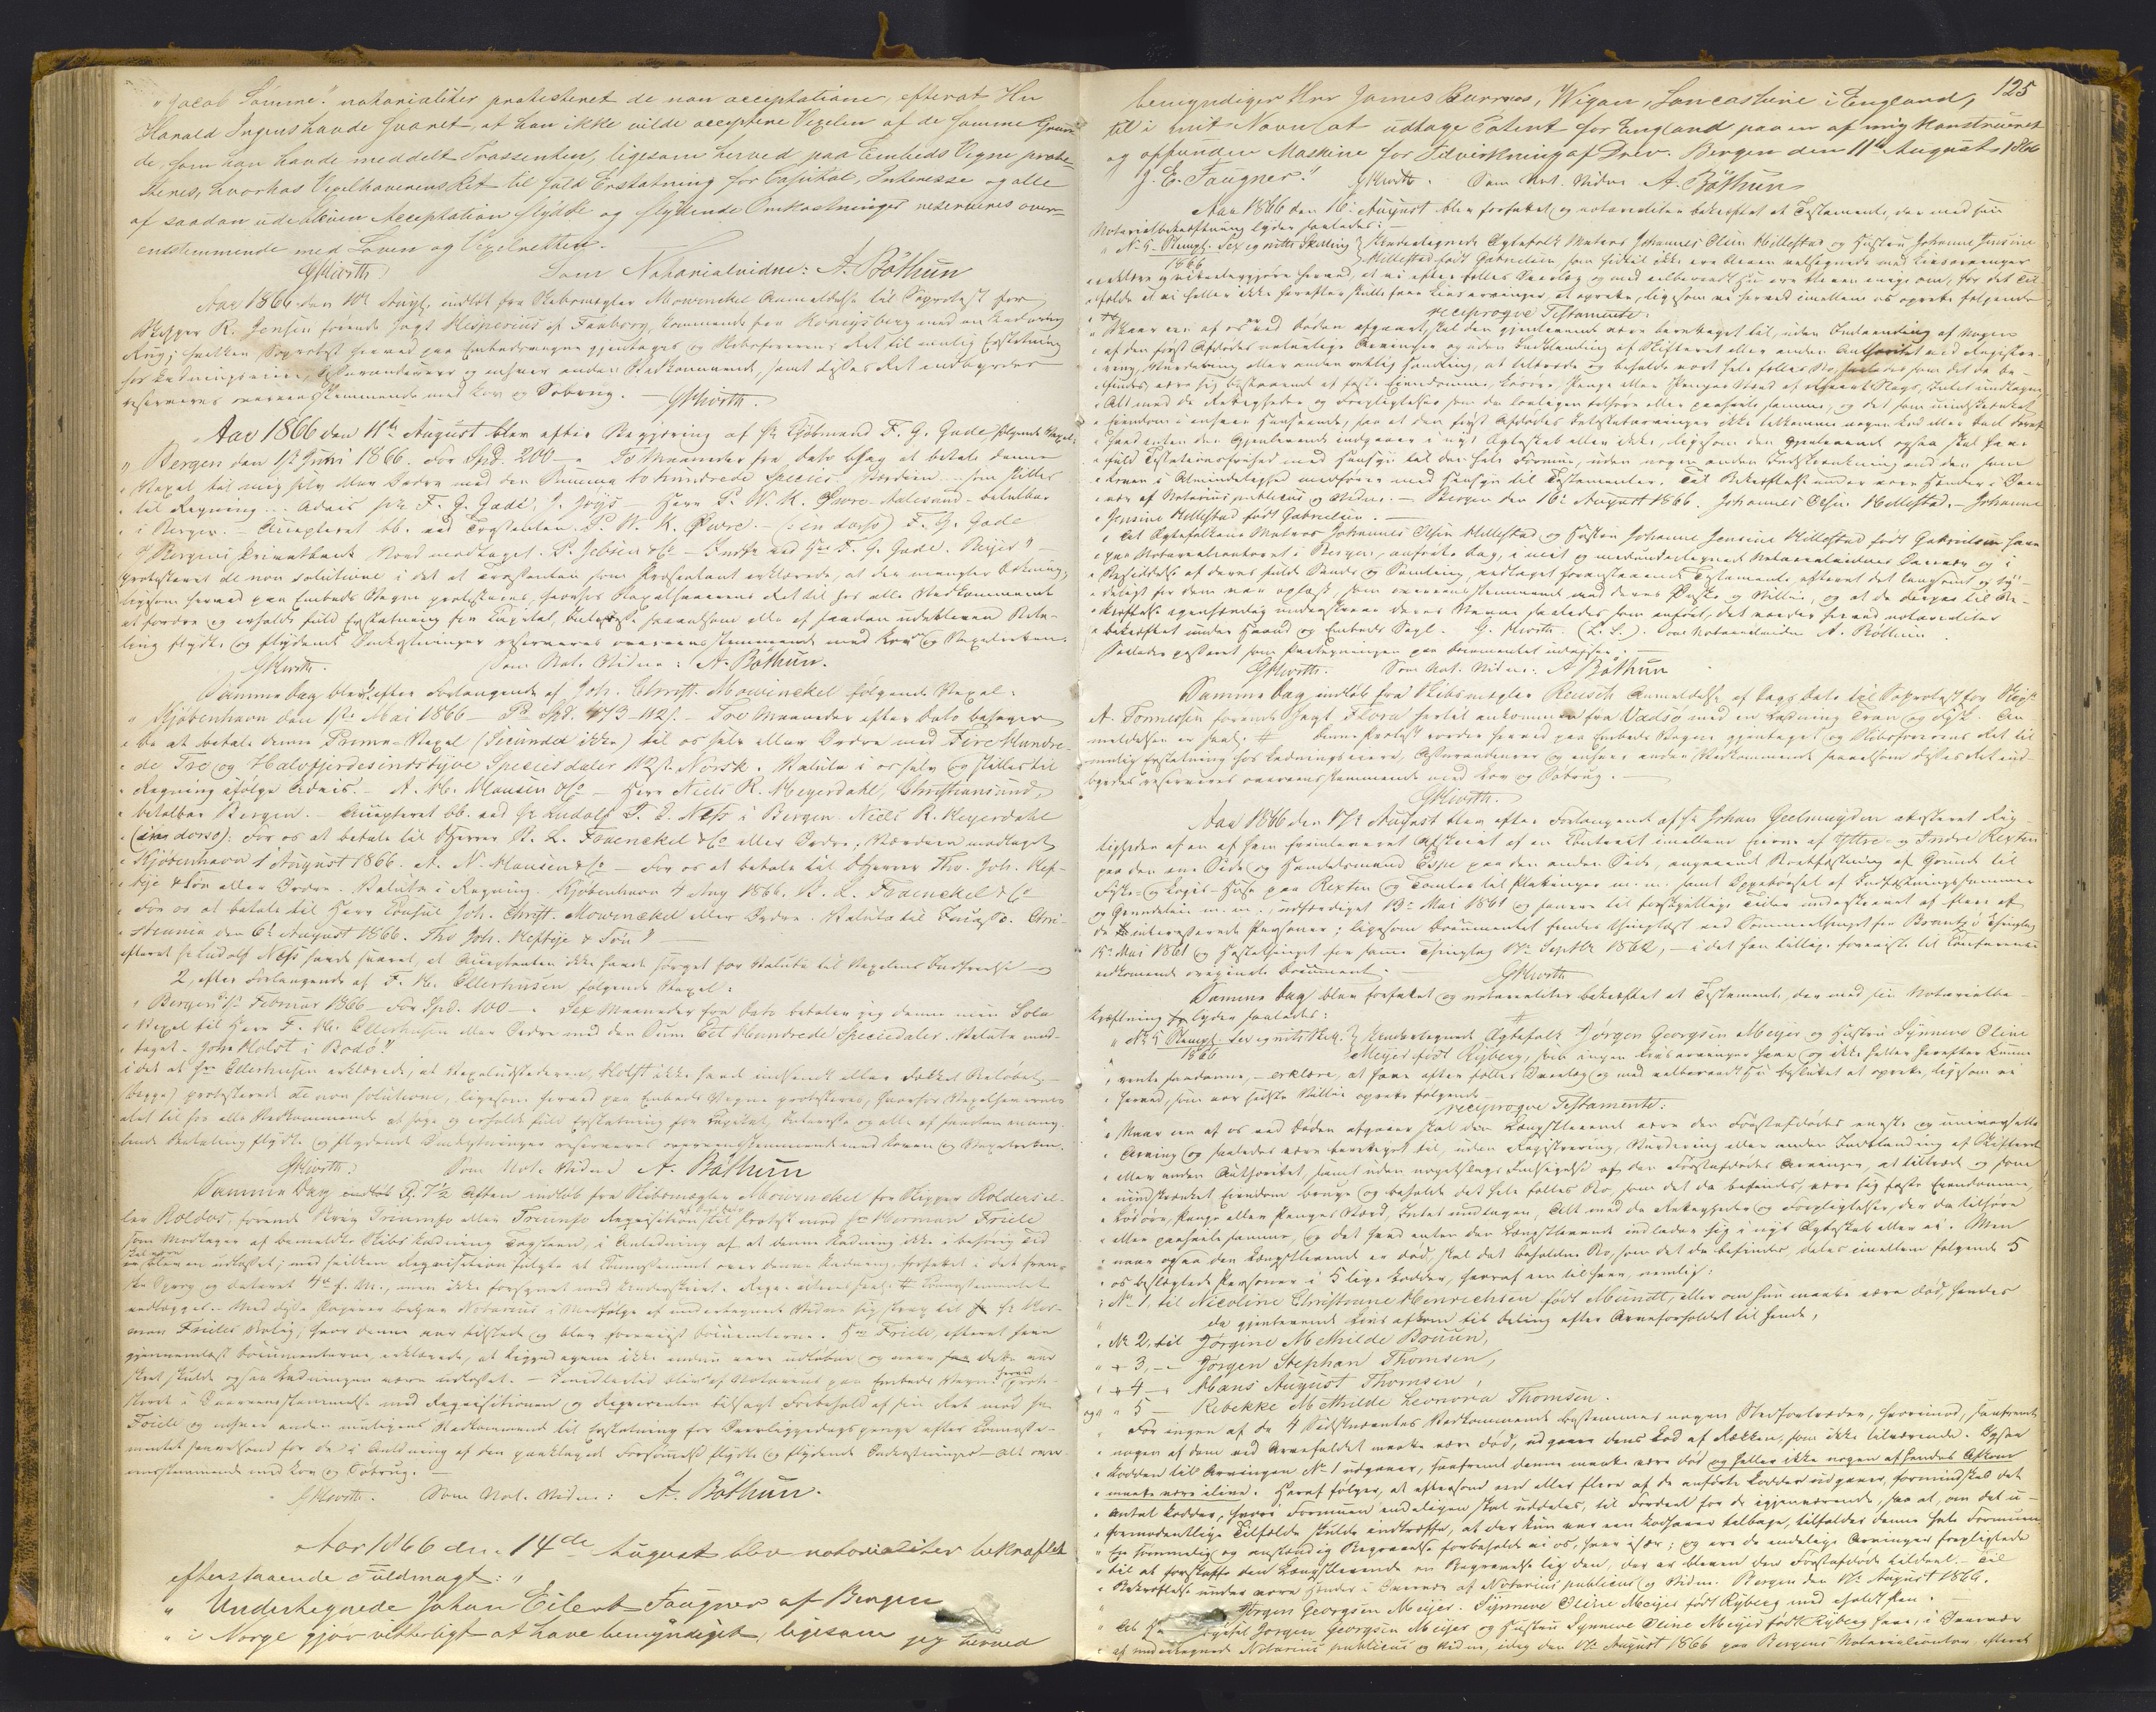 "Jacob Sømme." notarialiter protesteret de non acceptatione, efterat Hr
Harald Irgens havde svaret, at han ikke vilde acceptere Vexelen af de samme Grun-
de, som han havde meddelt Trassenten, ligesom herved paa Embeds Vegne prote-
steres, hvorhos Vexelhaverens Ret til fuld Erstatning for Capital, Interesse og alle
af saadan udebleven Acceptation flydte og flydende Omkostninger reserveres over-
ensstemmende med Loven og Vexelretten.
Som Notarialvidne: A. Bøthun
Aar 1866 den 10de Augt. indløb fra Skibsmægler Mowinckel Anmeldelse til Søprotest for
Skipper R. Jensen førende Jagt Hesperius af Faaborg, kommende fra Königsberg med en Ladning
Rug; hvilken Søprotest herved paa Embedsvegne gjentages og Skibsførerens Ret til mulig Erstatning
hos Ladningseiere, Assurandeurer og enhver anden Vedkommende, samt disses Ret indbyrdes
reserveres overensstemmende med Lov og Søbrug.
Aar 1866 den 11te August blev efter Begjæring af Hr Kjøbmand F. G. Gade følgende Vexel:
"Bergen den 1ste Juni 1866. For Spd. 200 — To Maaneder fra dato behag at betale denne
Vexel til mig selv eller Ordre med den Summa to hundrede Species. Værdien stilles
til Regning. Advis pr. F. G. Gade, J. Herr P. W. K. Aalesund - betalbar
i Bergen. - Accepteret bb. ved P. W. K. - (: en dorso) F. G. Gade
Bergens Privatbank modtaget. P. Jebsen & Co
protesteret de non solutione i det at Trassenten som Præsentant erklærede, at der mangler Dækning;
ligesom herved paa Embeds Vegne protesteres, hvorhos Vexelhaverens Ret til hos alle Vedkommende
at fordre og erholde fuld Erstatning for Capital, Interesse saavelsom alle af saadan udebleven Beta-
ling flydte og flydende Omkostninger reserveres overensstemmende med Lov og Vexelretten.
Som Not. Vidne: A. Bøthun.
Samme Dag blev 1, efter Forlangende af Joh. Christ. Mowinckel følgende Vexel:
"Kjøbenhavn den 1ste Mai 1866 — Pr Spd. 473-112 s. — Tre Maaneder efter Dato behager
De at betale denne Prima-Vexel (Secunda ikke) til os selv eller Ordre med Fire Hundre-
de Tre og Halvfjerdesindstyve Speciesdaler Norsk. Valuta i os selv og stilles til
Regning ifølge Advis. - A. N. Hansen & Co - Herr Niels R. Meyerdahl, Christiansund,
betalbar Bergen. - Accepteret bb. ved Hr Ludolf T. E. Næss i Bergen. Niels R. Meyerdahl
(in dorso): For os at betale til Herrer R. L. Fraenckel & Co eller Ordre; Værdien modtaget
Kjøbenhavn 1 August 1866. A. N. Hansen & Co - For os at betale til Herrer Tho. Joh. Hef-
tye & Søn eller Ordre. Valuta i Regning. Kjøbenhavn 4 Aug 1866. R. L. Fraenckel & Co
For os at betale til Herr Consul Joh. Christ. Mowinckel eller Ordre. Valuta til Incasso. Chri-
stiania den 6te August 1866. Tho Joh. Heftye & Søn"
efterat Hr Ludolf Næss havde svaret, at Acceptanten ikke havde sørget for Valuta til Vexelens Indfrielse - og
2, efter Forlangende af F. H. Ellerhusen følgende Vexel:
"Bergen Februar 1866 - For Spd. 100 - Sex Maaneder fra Dato betaler jeg denne min Sola
Vexel til Herr F. H. Ellerhusen eller Ordre med den Sum Eet Hundrede Speciedaler. Valuta mod-
taget. John Holst i Bodø."
i det at Hr Ellerhusen erklærede, at Vexeludstederen, Holst ikke havde indsendt eller dækket Beløbet. -
begge) protesterede de non solutione, ligesom herved paa Embeds Vegne protesteres, hvorhos Vexelhavernes
Ret til hos alle Vedkommende at søge og erholde fuld Erstatning for Capital, Interesse og alle af saadan mang-
lende Betaling flydte og flydende Omkostninger reserveres overensstemmende med Loven og Vexelretten.
Som Not. Vidne A. Bøthun
Samme Dag Kl. 7½ Aften indløb fra Skibsmægler Mowinckel for Skipper Rolders el-
ler Roldos, førende Brig Triumpho eller Triumfo Requisition til Protest mod Hr Herman Friele
som Modtager af bemeldte Skibs Ladning Tagsteen, i Anledning af at denne Ladning ikke i behørig Tid
bleven udlosset; med hvilken Requisition fulgte et Connossement over denne Ladning, forfattet i det fran-
ske Sprog og dateret 4de f. M., men ikke forsynet med Underskrift.
vedlægges. Med disse Papirer begav Notarius i Medfølge af undertegnede Vidne sig strax til Hr Her-
man Frieles Bolig, hvor denne var tilstede og blev forevist Documenterne. Hr Friele, efterat have
gjennemlæst Documenterne, erklærede, at Liggedagene ikke endnu vare udløbne og naar dette var
skeet skulde ogsaa Ladningen være udlosset. - Imidlertid blev af Notarius paa Embeds Vegne herved prote-
steret i Overensstemmelse med Requisitionen og Requirenten tilsagt Forbehold af sin Ret mod Hr
Friele og enhver anden muligens Vedkommende til Erstatning for Overliggedagspenge efter Connosse-
mentet saavelsom for de i Anledning af den paaklagede Forsømmelse flydte og flydende Omkostninger - Alt over-
ensstemmende med Lov og Søbrug. -
Som Not. Vidne: A. Bøthun.
Aar 1866 den 14de August blev notarialiter bekræftet
efterstaaende Fuldmagt: "
" Undertegnede Johan Eilert Faugner af Bergen
" i Norge gjør vitterligt at have bemyndiget, ligesom jeg herved
125
bemyndiger Herr James Burrows, Wigan, Lancashire i England,
til i mit Navn at udtage Patent for England paa en af mig konstrueret
og opfunden Maskine for Tilvirkning af Drev. Bergen den 11te August 1866
J. E. Faugner." Som Not. Vidne A. Bøthun
Aar 1866 den 16de August blev forfattet og notarialiter bekræftet et Testamente, der med sin
Notarialbekræftning lyder saaledes: -
"No 5 Stempl. Sex og nitti Skilling Undertegnede Ægtefolk Matros Johannes Olsen Hillestad og Hustru Johanne Jensine
1866 Hillestad født Gabrielsen som hidtil ikke ere bleven velsignede med Livsarvinger
erklære og vitterliggjøre herved, at vi efter fælles Overlæg og med velberaad Hu ere bleven enige om, for det Til-
fælde at vi heller ikke herefter skulle faae Livsarvinger, at oprette, ligesom vi herved imellem os oprette følgende
reciproqve Testamente:
"Naar en af os ved Døden afgaaer, skal den gjenlevende være berettiget til, uden Indvending af nogen
af den først Afdødes naturlige Arvinger og uden Indblanding af Skifteret eller anden Authoritet ved Registre-
ring, Vurdering eller anden retslig Handling, at tiltræde og beholde vort hele fælles Bo, saaledes som det da be-
findes, være sig bestaaende af faste Eiendomme, Løsøre, Penge eller Penges Værd af Slags, Intet undtagen
Alt med de Rettigheder og Forpligtelser som da lovligen tilhøre eller paahvile samme, og det som uindskrænket
Eiendom i enhver Henseende, saa at den først Afdødes Intestatarvinger ikke tilkomme nogen Lod eller Deel deraf
hvad enten den Gjenlevende indgaaer i nyt Ægteskab eller ikke, ligesom den Gjenlevende ogsaa skal have
fuld Testationsfrihed med Hensyn til den hele Formue, uden nogen anden Indskrænkning end den som
Loven i Almindelighed medfører med Hensyn til Testamenter. Til Bekræftelse under vore Hænder i Over-
vær af Notarius publicus og Vidne. - Bergen den 16de August 1866. Johannes Olsen Hillestad. - Johanne
Jensine Hillestad født Gabrielsen. -
At Ægtefolkene Matros Johannes Olsen Hillestad og Hustru Johanne Jensine Hillestad født Gabrielsen have
paa Notarialcontoret i Bergen, anførte Dag, i mit og medundertegnede Notarialvidnes Overvær og i
Besiddelse af deres fulde Sands og Samling, vedtaget foranstaaende Testamente, efterat det langsomt og ty-
deligt for dem var oplæst, som overensstemmende med deres Ønske og Villie, og at de derpaa til Be-
kræftelse egenhændig underskreve deres Navne saaledes som anført, det vorder herved notarialiter
bekræftet under Haand og Embeds Segl. (L.S.). som Notarialvidne A. Bøthun
Saaledes passeret som Paategningen paa Documentet indeholder. -
Som Not. Vidne: A Bøthun
Samme Dag indløb fra Skibsmægler Reusch Anmeldelse af Dags Dato til Søprotest for Skipr.
A. Tønnesen førende Jagt Flora hertil ankommen fra Vadsø med en Ladning Tran og Fisk. An-
meldelsen er saal. # Denne Protest vorder herved paa Embeds Vegne gjentaget og Skibsførerens Ret til
mulig Erstatning hos Ladningseiere, Assurandeurer og enhver anden Vedkommende saavelsom disses Ret ind-
byrdes reserveres overensstemmende med Lov og Søbrug. -
Aar 1866 den 17de August blev efter Forlangende af Hr Johan Geelmuyden attesteret Rig-
tigheden af en af ham fremlagt Afskrift af en Contract imellem Eierne af Yttre- og Indre Rexten
paa den ene Side og Handelsmand Espe paa den anden Side, angaaende Bortfæstning af Grunde til
Fiske- og Logis-Huse paa Rexten og Tomter til Pakninger m. m. samt Oppebørsel af Indfæstningssummer
og Grundleie m. m., udfærdiget 19de Mai 1861 og senere til forskjellige Tider underskrevet af flere af
de interesserede Personer; ligesom Documentet findes thinglæst ved Sommerthinget for Thinglag
15de Mai 1861 og Høstethinget for samme Thinglag 17de Septbr 1862, - i det han tillige foreviste til Conference
vedkommende originale Document. -
Samme Dag blev forfattet og notarialiter bekræftet et Testamente, der med sin Notarialbe-
kræftning lyder saaledes:
"No 5 Stempl. Sex og nitti Skill. Undertegnede Ægtefolk Jørgen Georgsen Meyer og Hustru Synneve Oline
1866 Meyer født Ryberg, som ingen Livsarvinger have og ikke heller herefter kunne
vente saadanne, - erklære, at have efter fælles Overlæg og med velberaad Hu besluttet at oprette, ligesom vi
herved, som vor sidste Villie oprette følgende
reciproqve Testamente:
Naar en af os ved Døden afgaaer skal den Længstlevende være den Førstafdødes eneste og universelle
Arving og saaledes være berettiget til, uden Registrering, Vurdering eller anden Indblanding af Skifteret
eller anden Authoritet, samt uden nogetslags Indsigelse af den Førstafdødes Arvinger, at tiltræde og som
uindskrænket Eiendom bruge og beholde det hele fælles Bo, som det da befindes, være sig faste Eiendomme,
Løsøre, Penge eller Penges Værd, Intet undtagen, Alt med de Rettigheder og Forpligtelser, der da tilhøre
eller paahvile samme, og det hvad enten den Længstlevende indlader sig i nyt Ægteskab eller ei. Men
naar ogsaa den Længstlevende er død, skal det beholdne Bo, som det da befindes, deles imellem følgende 5
os beslægtede Personer i 5 lige Lodder, hvoraf een til hver, nemlig:
No 1, til Nicoline Christiane Henrichsen født Mundt, eller om hun maatte være død, hendes
da gjenlevende Livsafkom til Deling efter Arveforholdet til hende,
No 2, til Jørgine Mathilde Bruun,
" 3, - Jørgen Stephan Thomsen,
" 4 - Hans August Thomsen,
og " 5 - Rebekke Mathilde Leonora Thomsen.
For ingen af de 4 Sidstnævntes Vedkommende bestemmes nogen Stedfortræder, hvorimod, saafremt
nogen af dem ved Arvefaldet maatte være død, udgaaer dens Lod af Rækken, som ikke tilværende. Ogsaa
Lodden til Arvingen No 1 udgaaer, saafremt denne maatte være død og heller ikke nogen af hendes Afkom
maatte være ilive. Heraf følger, at eftersom een eller flere af de anførte Lodder udgaaer, formindskes det
Antal Lodder, hvori Formuen endeligen skal uddeles, til Fordeel for de igjenværende, saa at, om det u-
formodentlige Tilfælde skulde indtræffe, at der kun var een Lodhaver tilbage, tilfalder denne hele Formuen
En sømmelig og anstændig Begravelse forbeholde vi os, hver især; og ere de endelige Arvinger forpligtede
til at forskaffe den Længstlevende en Begravelse lig den, der er bleven den Førstafdøde tildeel. - Til
Bekræftelse under vore Hænder i Overvær af Notarius publicus og Vidne. Bergen den 17de August 1866.
Jørgen Georgsen Meijer. Synneve Oline Meijer født Ryberg med iholdt Pen.
At Jørgen Georgsen Meijer og Hustru Synneve Oline Meijer født Ryberg have, i Overvær
af undertegnede Notarius publicus og Vidne, idag den 17de August 1866 paa Bergens Notarialcontor, efterat